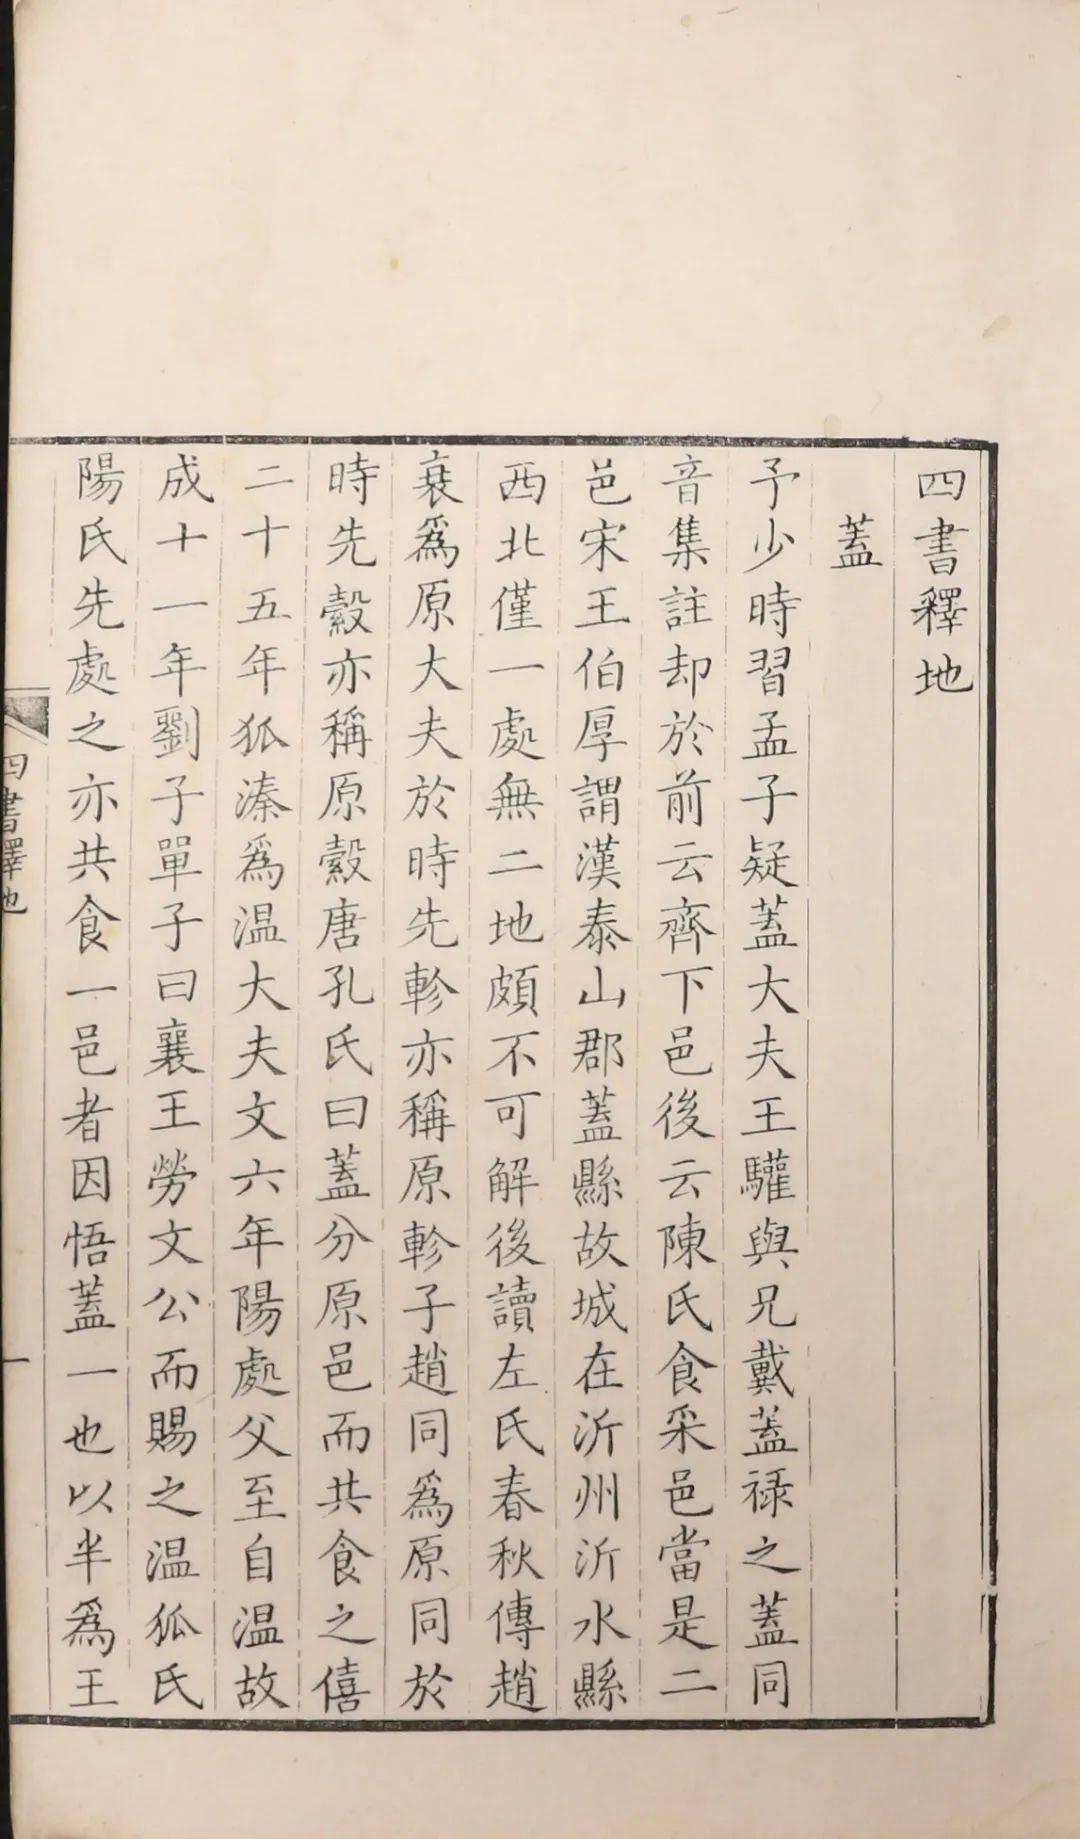 四書釋地
蓋
予少時習孟子疑蓋大夫王驩與兄戴蓋禄之蓋同
音集註却於前云齊下邑後云陳氏食采邑當是二
邑宋王伯厚謂漢泰山郡蓋縣故城在沂州沂水縣
西北僅一處無二地頗不可解後讀左氏春秋傳趙
衰爲原大夫於時先軫亦稱原軫子趙同爲原同於
時先縠亦稱原縠唐孔氏曰蓋分原邑而共食之僖
二十五年狐溱爲温大夫文六年陽處父至自温故
成十一年劉子單子曰襄王勞文公而賜之温狐氏
陽氏先處之亦共食一邑者因悟蓋一也以半爲王
四書釋地
一